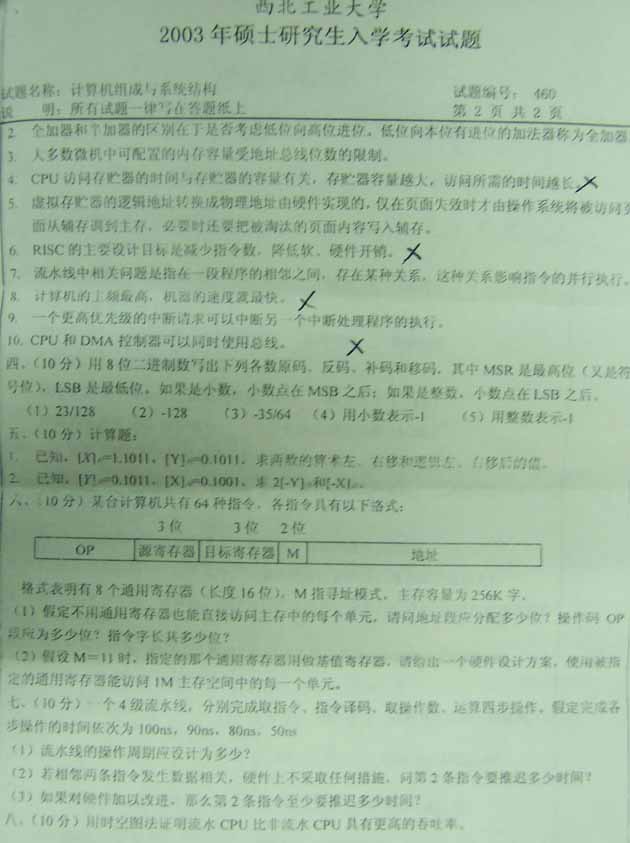 西北工业大学
2003 年硕士研究生入学考试试题
试题名称：计算机组成与系统结构 试题编号： 460
说 明：所有试题一律写在答题纸上 第 2 页 共 2 页
2. 全加器和半加器的区别在于是否考虑低位向高位进位。低位向本位有进位的加法器称为全加器
3. 大多数微机中可配置的内存容量受地址总线位数的限制。
4. CPU 访问存贮器的时间与存贮器的容量有关，存贮器容量越大，访问所需的时间越长。
5. 虚拟存贮器的逻辑地址转换成物理地址由硬件实现的，仅在页面失效时才由操作系统将被访问页
面从辅存调到主存，必要时还要把被淘汰的页面内容写入辅存。
6. RISC 的主要设计目标是减少指令数，降低软、硬件开销。
7. 流水线中相关问题是指在一段程序的相邻之间，存在某种关系，这种关系影响指令的并行执行。
8. 计算机的主频最高，机器的速度就最快。
9. 一个更高优先级的中断请求可以中断另一个中断处理程序的执行。
10. CPU 和 DMA 控制器可以同时使用总线。
四、（10 分）用 8 位二进制数写出下列各数原码、反码、补码和移码。其中 MSR 是最高位（又是符
号位），LSB 是最低位。如果是小数，小数点在 MSB 之后；如果是整数，小数点在 LSB 之后。
（1）23/128 （2）-128 （3）-35/64 （4）用小数表示-1 （5）用整数表示-1
五、（10 分）计算题：
1. 已知，[X] =1.1011，[Y] =0.1011，求两数的算术左、右移和逻辑左、右移后的值。
2. 已知，[Y] =0.1011，[X] =0.1001，求 2[-Y] 和[-X] 。
六、（10 分）某台计算机共有 64 种指令，各指令具有以下格式：
3 位 3 位 2 位
OP 源寄存器 目标寄存器 M 地址
格式表明有 8 个通用寄存器（长度 16 位），M 指寻址模式，主存容量为 256K 字。
（1）假定不用通用寄存器也能直接访问主存中的每个单元，请问地址段应分配多少位？操作码 OP
段应为多少位？指令字长共多少位？
（2）假设 M＝11 时，指定的那个通用寄存器用做基值寄存器，请给出一个硬件设计方案，使用被指
定的通用寄存器能访问 1M 主存空间中的每一个单元。
七、（10 分）一个 4 级流水线，分别完成取指令、指令译码、取操作数、运算四步操作，假定完成各
步操作的时间依次为 100ns，90ns，80ns，50ns
（1）流水线的操作周期应设计为多少？
（2）若相邻两条指令发生数据相关，硬件上不采取任何措施，问第 2 条指令要推迟多少时间？
（3）如果对硬件加以改进，那么第 2 条指令至少要推迟多少时间？
八、（10 分）用时空图法证明流水 CPU 比非流水 CPU 具有更高的吞吐率。